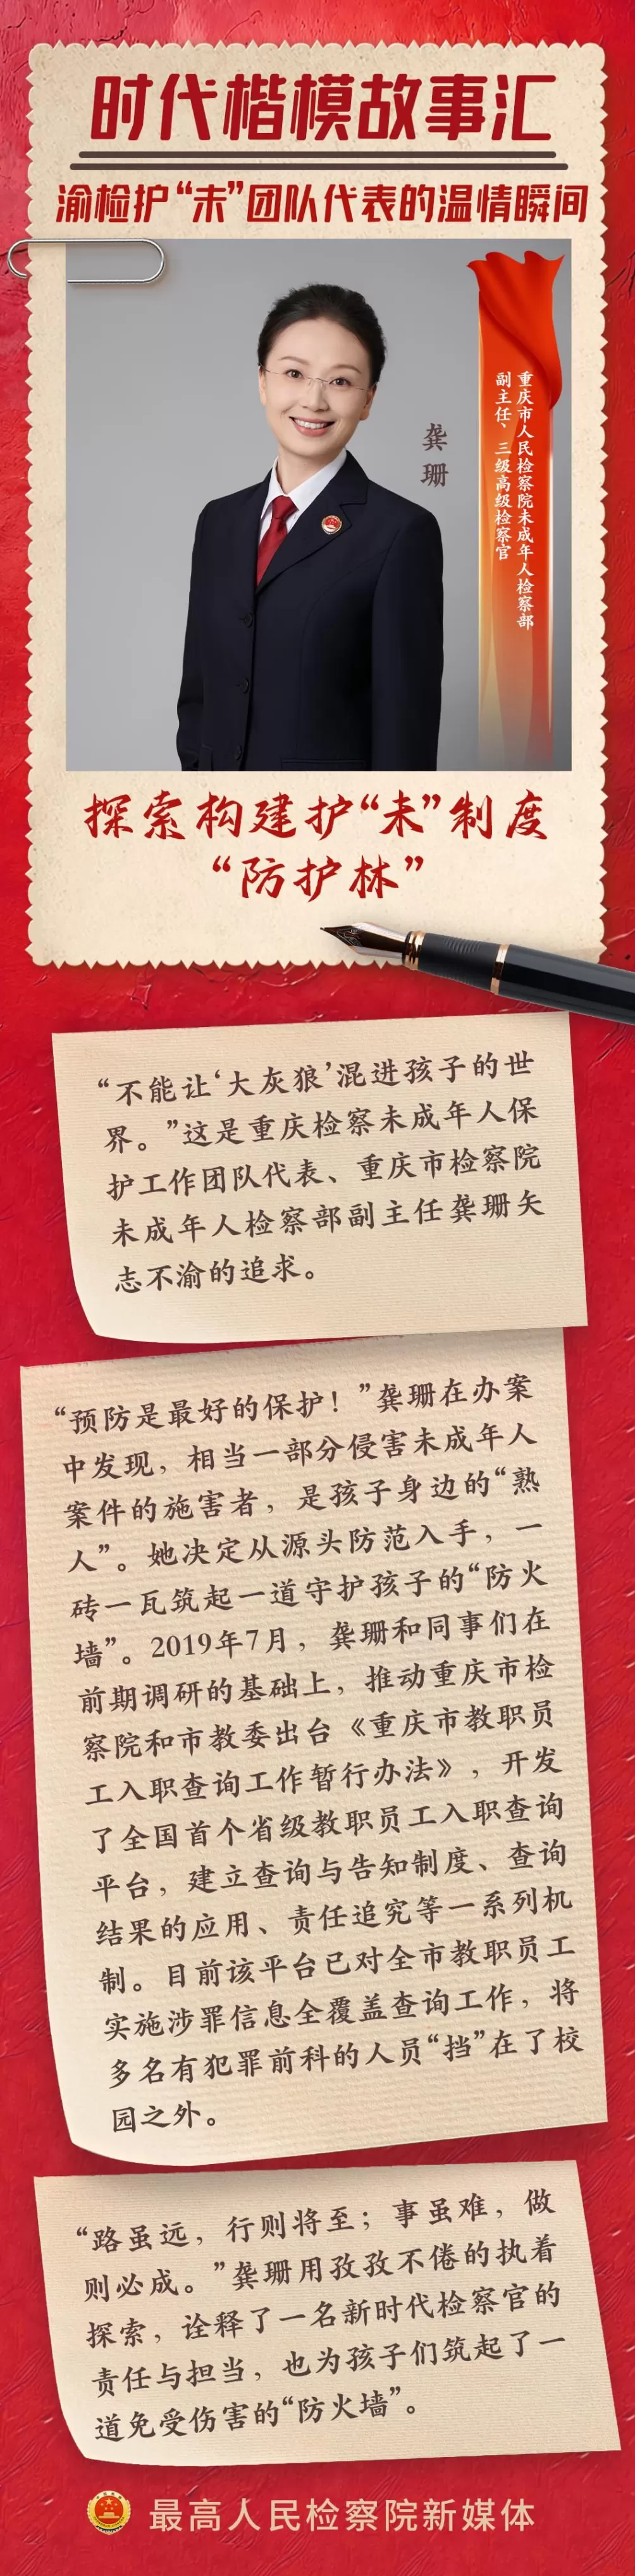 时代楷模故事汇
渝检护“未”团队代表的温情瞬间
龚珊
重庆市人民检察院未成年人检察部
副主任、三级高级检察官
探索构建护“未”制度
“防护林”
“不能让‘大灰狼’混进孩子的世
界。”这是重庆检察未成年人保
护工作团队代表、重庆市检察院
未成年人检察部副主任龚珊矢
志不渝的追求。
“预防是最好的保护！”龚珊在办案
中发现，相当一部分侵害未成年人
案件的施害者，是孩子身边的“熟
人”。她决定从源头防范入手，一
砖一瓦筑起一道守护孩子的“防火
墙”。2019年7月，龚珊和同事们在
前期调研的基础上，推动重庆市检
察院和市教委出台《重庆市教职员
工入职查询工作暂行办法》，开发
了全国首个省级教职员工入职查询
平台，建立查询与告知制度、查询
结果的应用、责任追究等一系列机
制。目前该平台已对全市教职员工
实施涉罪信息全覆盖查询工作，将
多名有犯罪前科的人员“挡”在了校
园之外。
“路虽远，行则将至；事虽难，做
则必成。”龚珊用孜孜不倦的执着
探索，诠释了一名新时代检察官的
责任与担当，也为孩子们筑起了一
道免受伤害的“防火墙”。
最高人民检察院新媒体